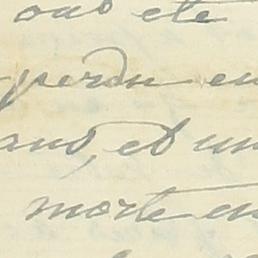 ous été
perdu en
ans, et un
morte en